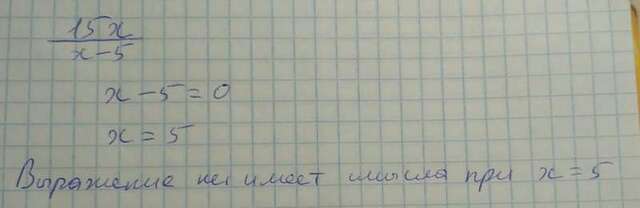 15x
x-5
x-5=0
x=5
Выражение не имеет смысла при x=5